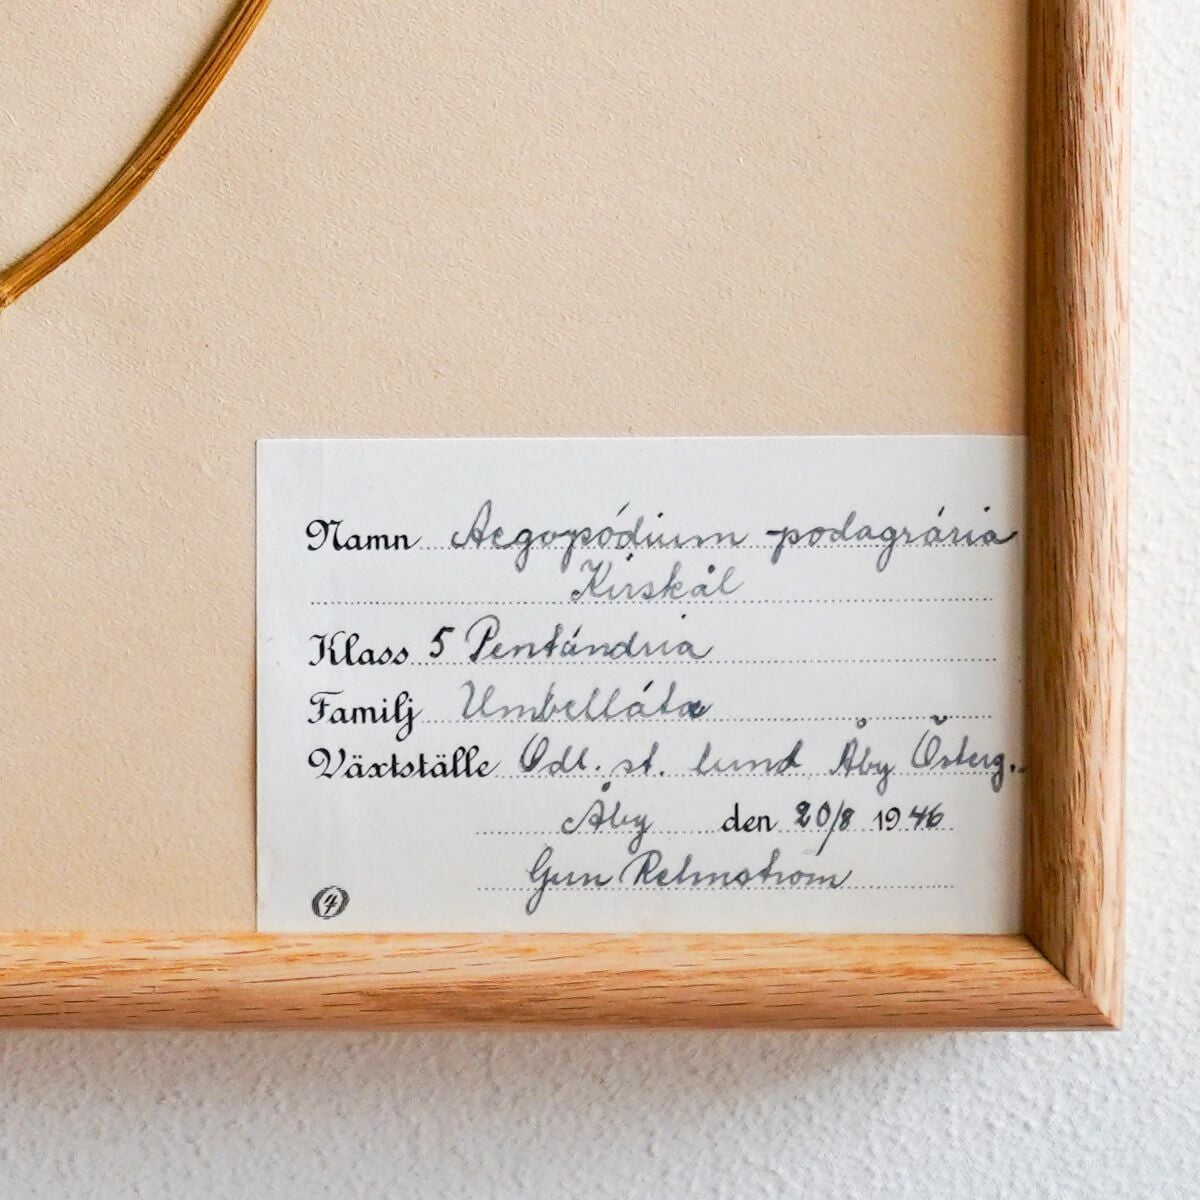 Namn Aegopódium podagrária
Kirskål
Klass 5 Pentándria
Familj Umbellátæ
Växtställe Odl. st. lund Åby Österg.
Åby den 20/8 1946
Gun Relmstrom
4